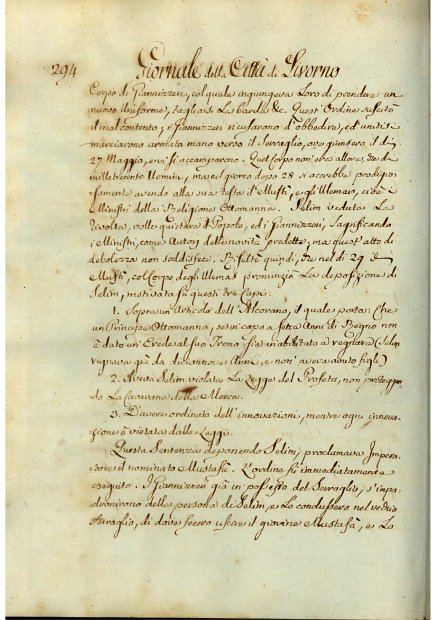 294
Giornale della Città di Livorno
Corpo di Giannizzeri, col quale ingiungeva Loro di prendere un
nuovo Uniforme, tagliarsi La barba &c. Quest'Ordine suscitò
il mal contento; i Giannizzeri ricusarono d'obbedire, ed unitisi
marciarono armata mano verso il Serraglio, ove giunsero il dì
27 Maggio, e vi si accamparono. Quel Corpo non era allora, che di
mille trecento Uomini, ma nel giorno dopo 28 si accrebbe prodigio-
samente avendo alla sua testa il Muftì, e gli Ulemas, cioè i
Ministri della Religione Ottomanna. Selim veduta La
rivolta, volle quietare il Popolo, ed i Giannizzeri, sagrificando
i Ministri, come Autori della novità predetta; ma quest'atto di
debolezza non soddisfece. Risultò quindi, che nel dì 29 il
Muftì, col Corpo degli Ulemas pronunziò La deposizione di
Selim, motivata su questi tre Capi.
1. Sopra un Articolo dell'Alcorano, il quale porta: Che
un Principe Ottomanno, se in capo a sette Anni di Regno non
è dato un Erede al suo Trono sia inabilitato a regnare (Selim
regnava già da diciannove Anni, e non aveva avuto figli)
2. Aveva Selim violata La Legge del Profeta, non proteggen-
do La Caravana della Mecca.
3. D'avere ordinato dell'innovazioni, mentre ogni innova-
zione è vietata dalle Leggi.
Questa Sentenza deponendo Selim, proclamava Impera-
tore il nominato Mustafà. L'ordine fù immediatamente
eseguito. I Giannizzeri già in possesso del Serraglio, s'impa-
dronirono della persona di Selim, e Lo condussero nel vecchio
Serraglio, di dove fecero uscire il giovine Mustafà, e Lo